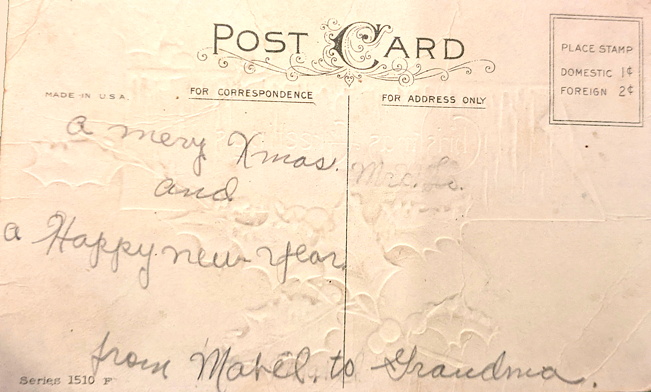 POST CARD
PLACE STAMP
DOMESTIC 1¢
FOREIGN 2¢
MADE IN U.S.A.
FOR CORRESPONDENCE
FOR ADDRESS ONLY
a mery Xmas.
and
a Happy new year
from Mabel. to Grandma.
Series 1510 F